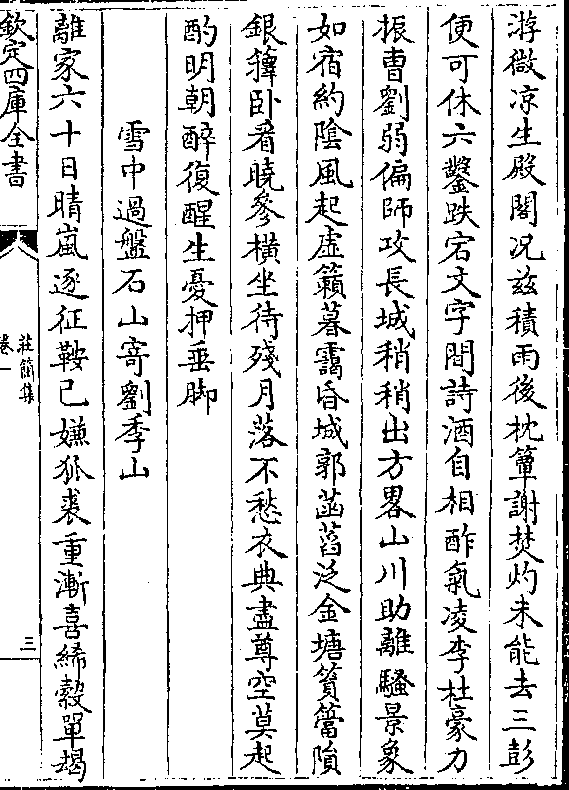 游微凉生殿閣况兹積雨後枕簟謝焚灼未能去三彭
便可休六鑿跌宕文字間詩酒自相酢氣凌李杜豪力
振曹劉弱偏師攻長城稍稍出方畧山川助離騷景象
如宿約陰風起虚籟暮靄昏城郭菡萏泛金塘篔簹隕
銀籜卧看曉參横坐待殘月落不愁衣典盡尊空莫起
酌明朝醉復醒生憂押垂脚
雪中過盤石山寄劉季山
離家六十日晴嵐逐征鞍已嫌狐裘重漸喜絺縠單朅
欽定四庫全書
莊簡集
卷一
三